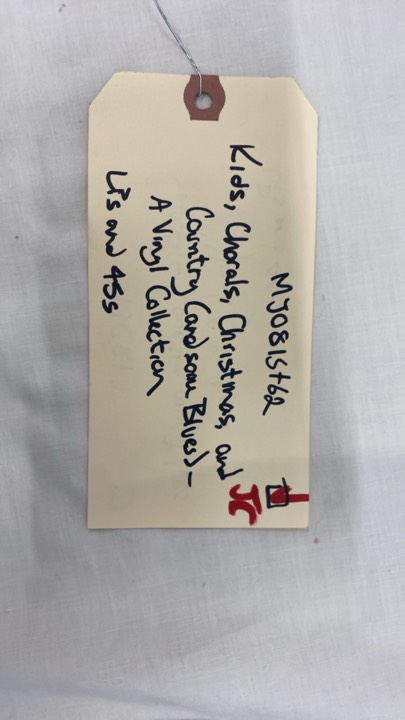 MJ0815+62
Kids, Chorals, Christmas, and
Country (and some Blues) -
A Vinyl Collection
LPs and 45s
JC